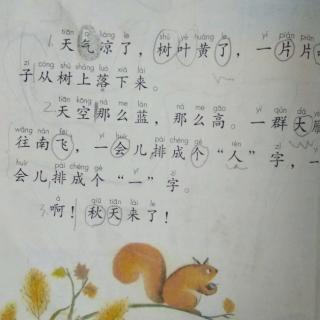 1. tiān qì liáng le shù yè huáng le yí piàn piàn
天气凉了，树叶黄了，一片片
zi cóng shù shàng luò xià lái
子从树上落下来。
2. tiān kōng nà me lán nà me gāo yì qún dà
天空那么蓝，那么高。一群大
wǎng nán fēi yí huìr pái chéng gè rén zì yí
往南飞，一会儿排成个“人”字，一
huìr pái chéng gè yī zì
会儿排成个“一”字。
3. a qiū tiān lái le
啊！秋天来了！